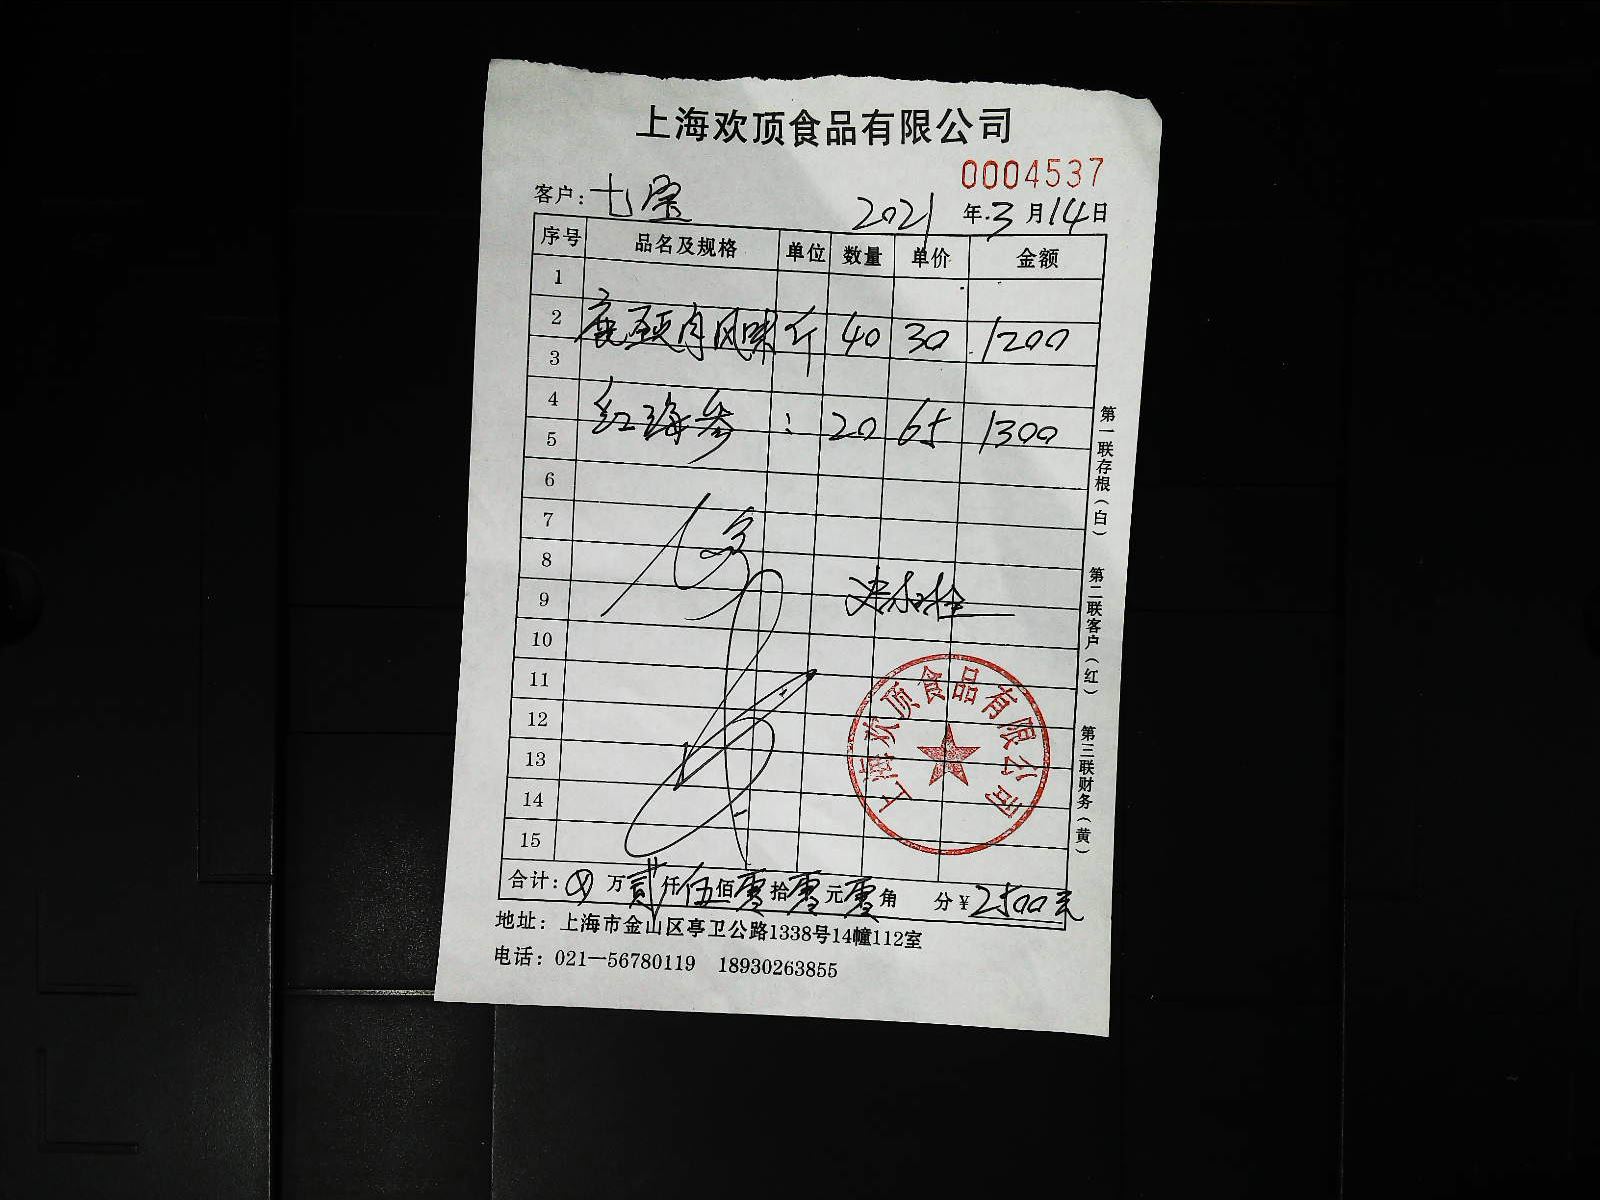 上海欢顶食品有限公司
0004537
客户：七宝 2021年3月14日
序号 品名及规格 单位 数量 单价 金额
1
2 鹿 肉风味 斤 40 30 1200
3
4 红海参 : 20 65 1300
5
6
7
8
9
10
11
12
13
14
15
上海欢顶食品有限公司
合计：⊗万贰仟伍佰零拾零元零角 分¥2500元
地址：上海市金山区亭卫公路1338号14幢112室
电话：021—56780119 18930263855
第一联存根（白）
第二联客户（红）
第三联财务（黄）